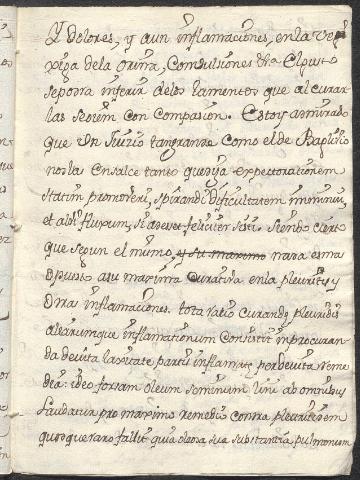 Y dolores, y aun inflamaciones, en la ve
xiga dela orina, Comvulsiones &ra. El pus
se podra inferir delos lamentos que al curar
las se oien con compasion. Estoy admirado
que un Juizio tan grande como el de Baglivio
nos la ensalce tanto que diga expectorationem
statim promoveri, spirandi dificultatem imminui,
et alvi fluxum, si adesset feliciter sisti. Siendo cierto
que segun el mismo, y su maximo nada es mas
Opuesto a su maxima Curativa en la pleuritis y
Otras inflamaciones. tota ratio curandi pleuridis
aliarumque inflamationum Consistit in procuran
da devita laxitate partis inflamate per devita reme
dia: ideo forsam oleum seminum lini ab omnibus
laudatur pro maximo remedio contra pleuritidem
quo neque raro fallit quia oleosa sua substantia pulmonum